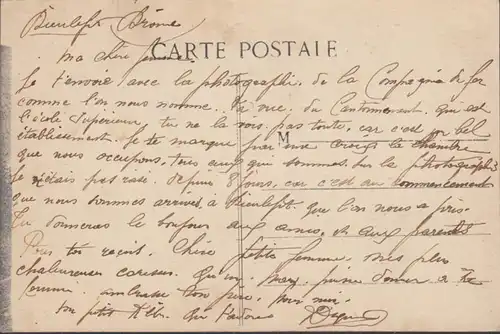 Dieulefit Drôme
ma chère femme
CARTE POSTALE
Je t'envoie avec la photographie de la Compagnie de fer
comme l'on nous nomme. la vue du Cantonnement qui est
l'école Supérieure, tu ne la vois pas toute, car c'est un bel
établissement. Je te marque par une croix la chambre
M
que nous occupons, tous ceux qui sommes sur la photographie
Je n'étais pas rasé depuis 8 jours, car c'est au commencement
que nous sommes arrivés à Dieulefit que l'on nous a pris.
Tu donneras le bonjour aux amis, et aux parents
Pous toi reçoit Chère petite femme mes plus
chaleureuses caresses. Qu'un mari puisse donner à sa
femme. embrasse ton père pour moi.
ton petit qui t'adore